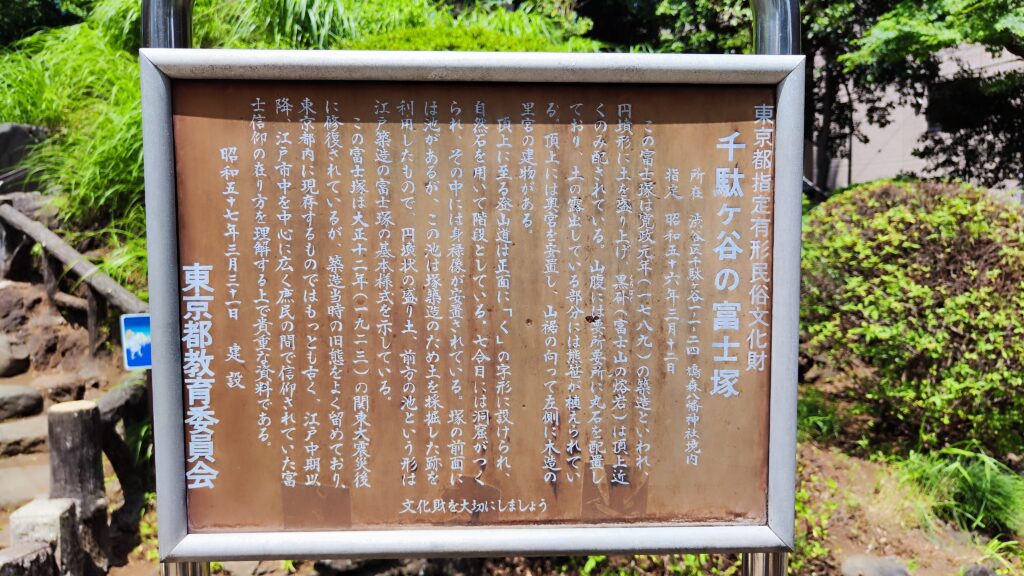 東京都指定有形民俗文化財
千駄ヶ谷の富士塚
所在 渋谷区千駄ヶ谷一ー二四 鳩森八幡神社境内
指定 昭和五十六年三月十二日
この富士塚は寛政元年(一七八九)の築造といわれ、
円墳形に土を盛り上げ、黒朴(富士山の熔岩)は頂上近
くのみ配されている。山腹には要所要所に丸石を配置し
ており、土の露出している部分には熊笹が植えられてい
る。頂上には奥宮を安置し、山裾の向って左側に木造の
里宮の建物がある。
頂上に至る登山道は正面に「く」の字形に設けられ、
自然石を用いて階段としている。七合目には洞窟がつく
られ、その中には身禄像が安置されている。塚の前面に
は池があるが、この池は塚築造のため土を採掘した跡を
利用したもので、円墳状の盛り土、前方の池という形は
江戸築造の富士塚の基本様式を示している。
この富士塚は大正十二年(一九二三)の関東大震災後
に修復されているが、築造当時の旧態をよく留めており、
東京都内に現存するものではもっとも古く、江戸中期以
降、江戸市中を中心に広く庶民の間で信仰されていた富
士信仰の在り方を理解する上で貴重な資料である。
昭和五十七年三月三十一日 建設
東京都教育委員会
文化財を大切にしましょう